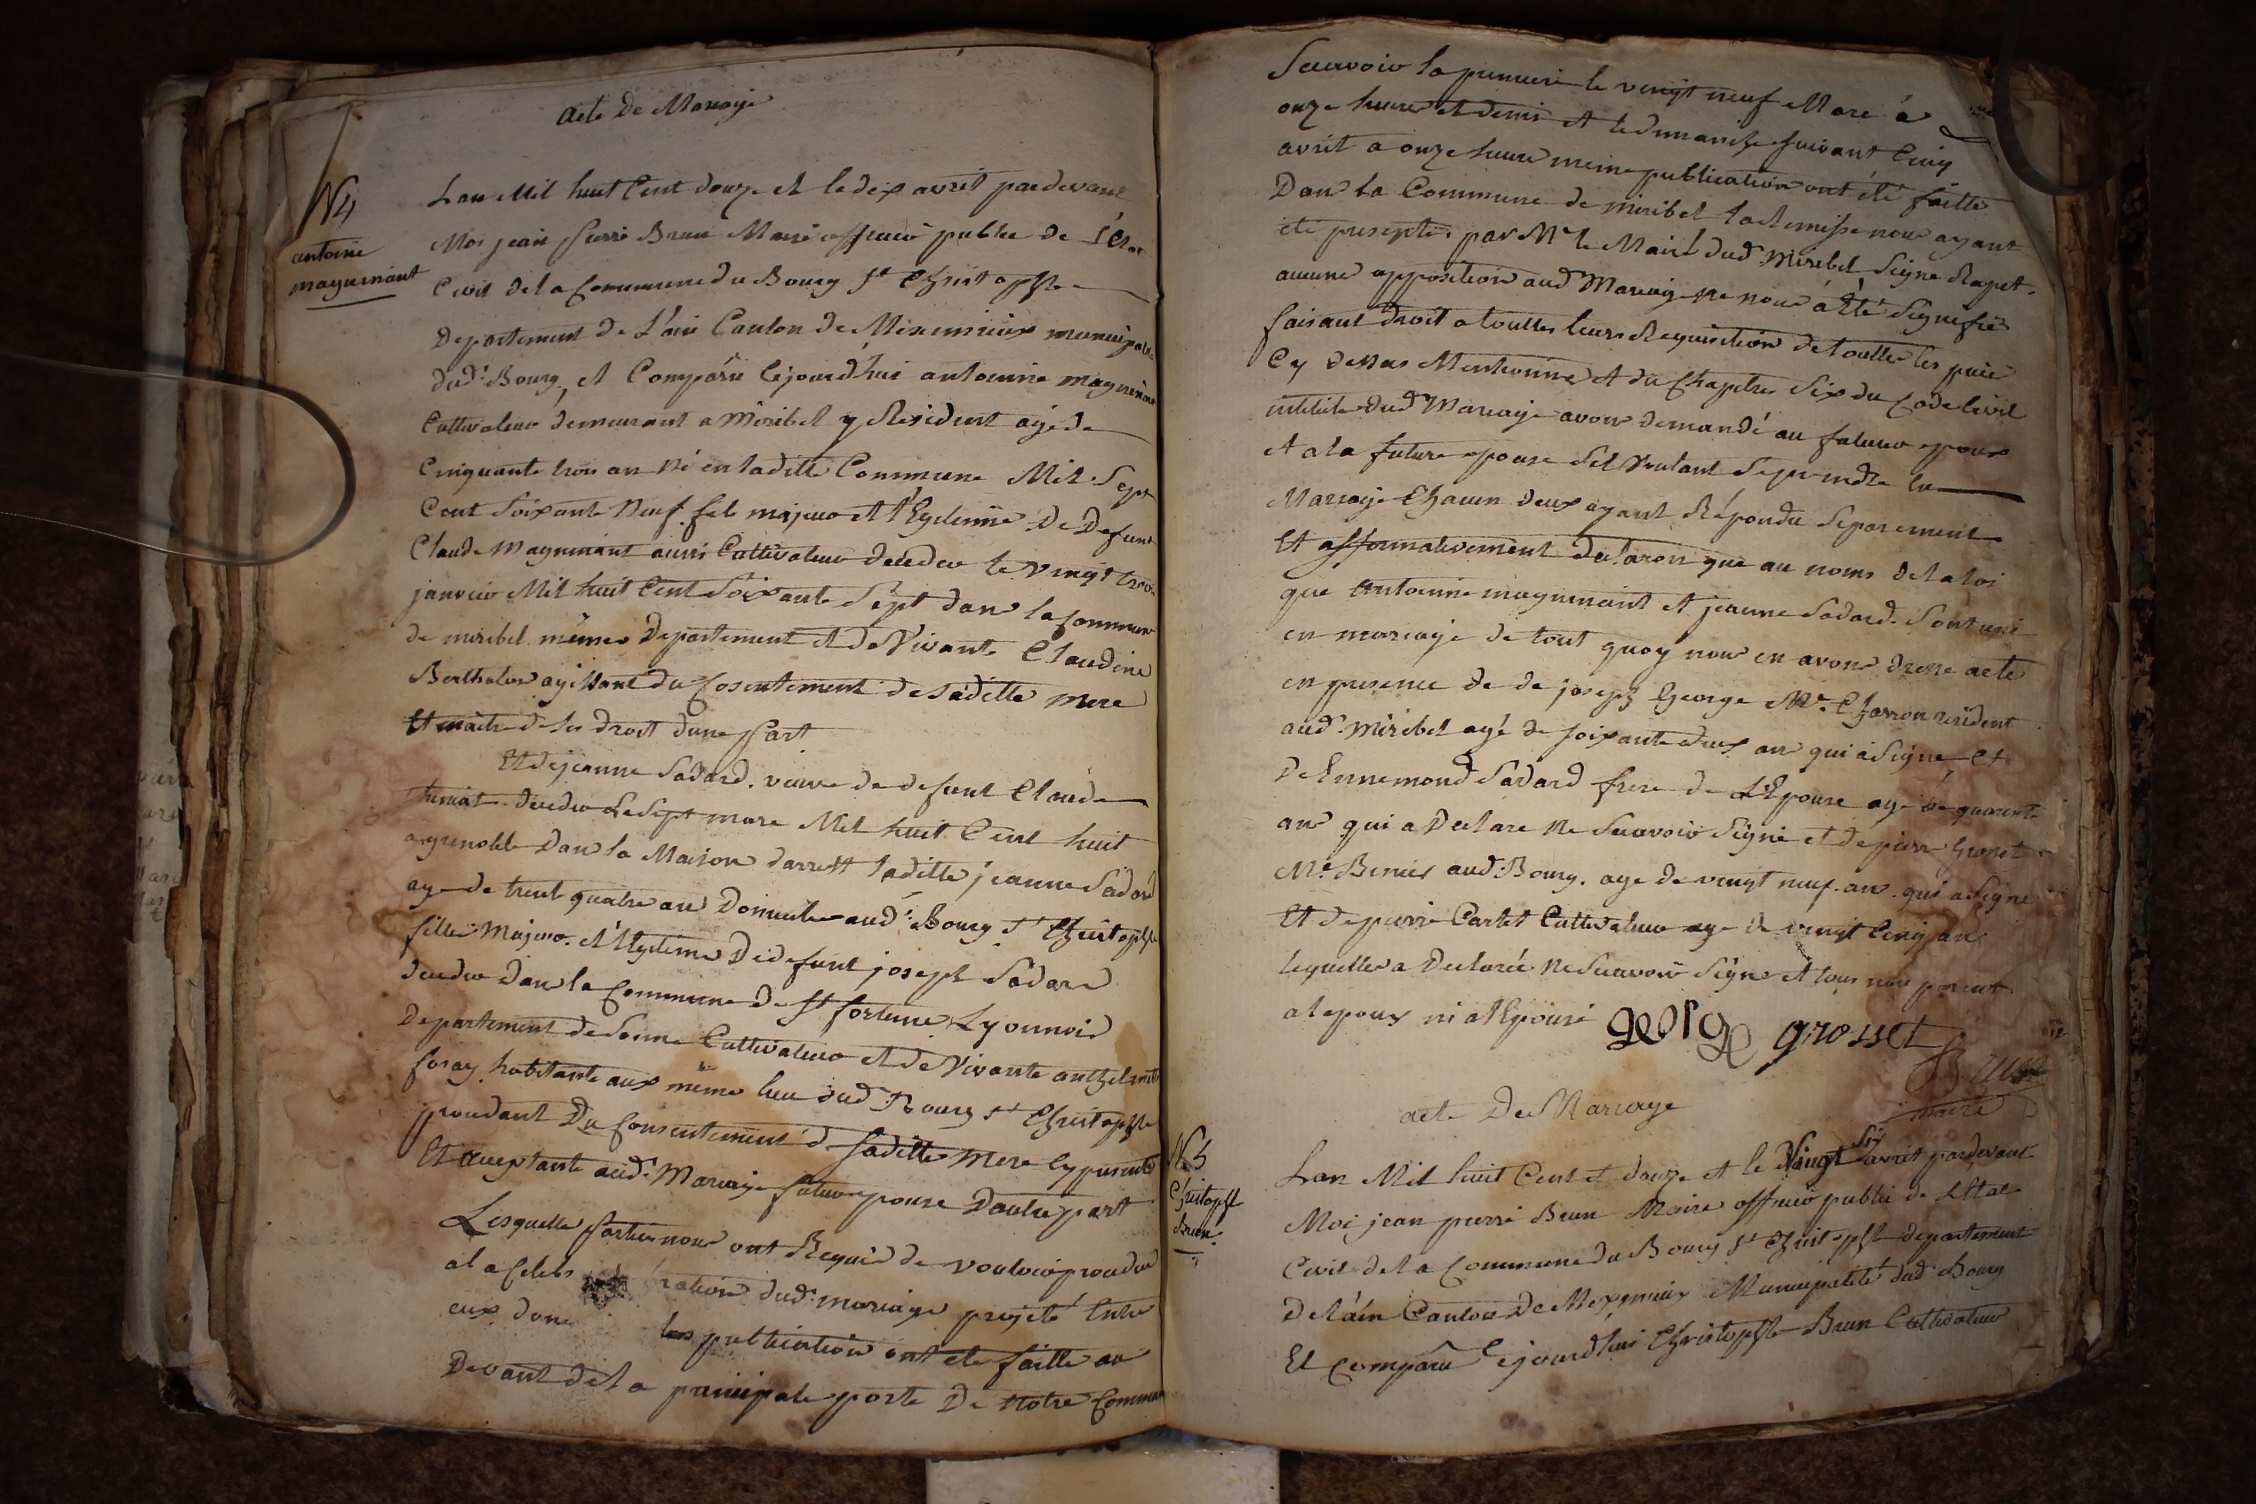 acte De Mariage
N4
antoine
magnenant
Lan Mil huit Cent douze et le dix avril pardevant
Moi jean pierre Brun Maire officié public de L'état
Civil dela Commune du Bourg St Christophe
Departement de L'ain Canton de Meximieux municipalité
dudt Bourg, et Comparu cejourdhui antoine magnenant
Cultivateur demeurant a Miribel y Résident agé de
Cinquante trois an né en laditte Commune Mil Sept
Cent Soixante Neuf fils majeur et légitime De Defunt
Claude Magnenant aussi Cultivateur décédé le vingt trois
janvier Mil huit Cent Soixante Sept dans la Commune
de miribel même Departement et de Vivante Claudine
Berthelon agissant du Cosentement de Sadette mere
Et maitre de ses droit dune part
Et de jeanne Sadard veuve de defunt Claude
décédé Le Sept mars Mil huit Cent huit
a grenoble Dans la Maison darrest laditte jeanne Sadard
age de trent quatre ans Domicilie audt Bourg St Christophe
fille Majeur et légitime De defunt joseph Sadard
décédé Dans la Commune De St fortune Lyonnois
Departement de Cultivateur et de Vivante anthelmette
foray habitante aux même lieu dudt Bourg St Christophe
procedant Du Consentement de Saditte Mere Cy presente
Et aceptante audt Mariage future epouse Dautre part
Lesquelle parties nous ont Requis de vouloir procedre
a la Celebration dudt mariage projeté Entre
eux dont les publication ont ete faitte au
Devant de la principale porte De Notre Commune
Scavoir la premiere le vingt neuf Mars à
onze heure et demi et le dimanche suivant Cinq
avril a onze heure meme publication ont été faitte
Dans la Commune de miribel la Remisse nous ayant
été presenté par Mr le Maire dudt Miribel Signe Rapet
aucune opposition audt Mariage ne nous à Eté Signifié
faisant droit a toutes leurs Requisition de toutte les piece
Cy dessus Mentionné et du Chapitre Six du Code Civil
intitule dudt Mariage avoir demandé au futur epoux
et a la future epouse Sil Veulant Se prendre en
Mariage Chacun deux ayant Répondu Separement
Et affirmativement declaron que au noms de la loi
que Antoinne magnenant et jeanne Sadard Sont uni
en mariage de tout quoy nous en avons dresse acte
en presence de de joseph George Me Charron resident
audt Miribel agé de soixante deux an qui à Signe et
De Ennemond Sadard frere de L'Epouse agé de quarante
an qui a Declare Ne Scavoir Signé et de pierre Grosset
Me Benier audt Bourg age de vingt neuf an qui a Signe
Et de pierre Cartet Cultivateur age de vingt Cinq an
lequelle a Declarée Ne Scavoir Signe et tous non parent
a lepoux ni a l'Epouse
george grosset
Brun
maire
acte De Mariage
N5
Christophe
Brun
Lan Mil huit Cent et douze et le Vingt Six avril pardevant
Moi jean pierre Brun Maire officié public de L'Etat
Civil dela Commune du Bourg St Christophe departement
De L'ain Canton De Meximieux Municipalité dudt Bourg
Et Comparu Cejourdhui Christophe Brun Cultivateur